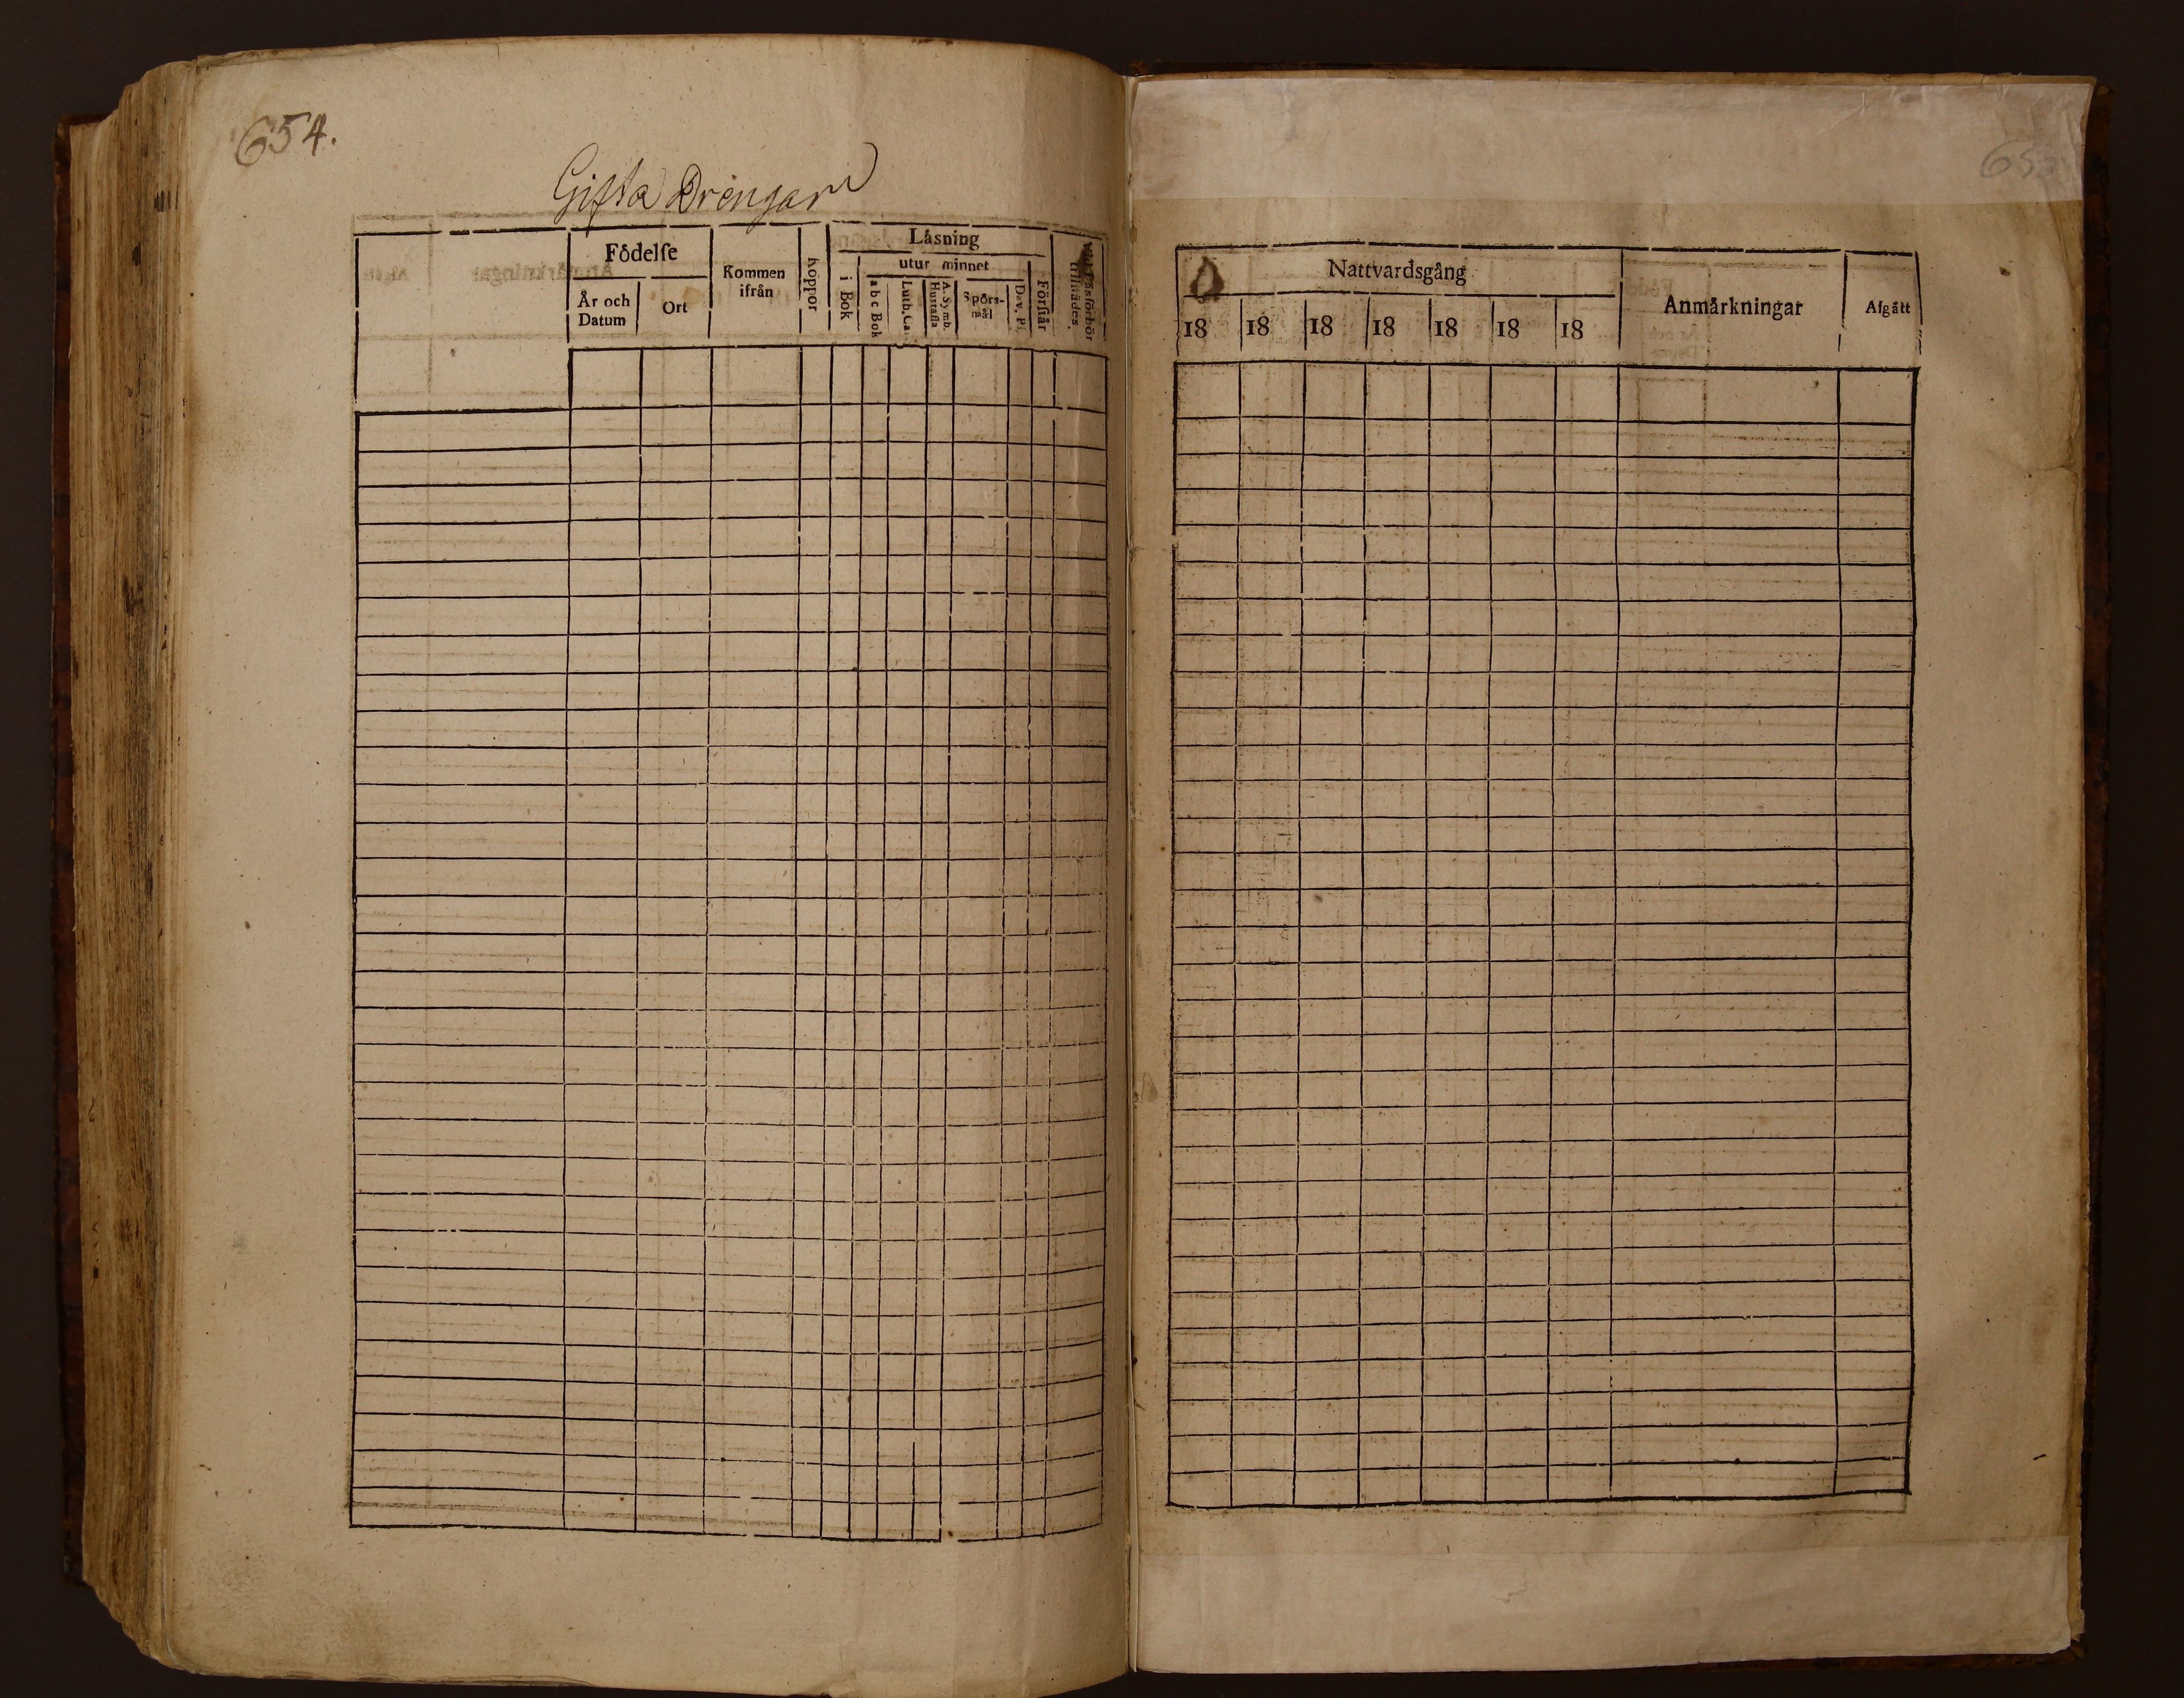 654.
Gifta Drengar
Födelſe
År och
Datum
Ort
Kommen
ifrån
Koppor
Läsning
i Bok
utur minnet
a b c Bok
Luth. Ca
A. Symb.
Huſtafla
Spörs-
mål
Dav. Pſ.
Förſtår
tillſtädes
Nattvardsgång
18 18 18 18 18 18 18
Anmärkningar
Afgått